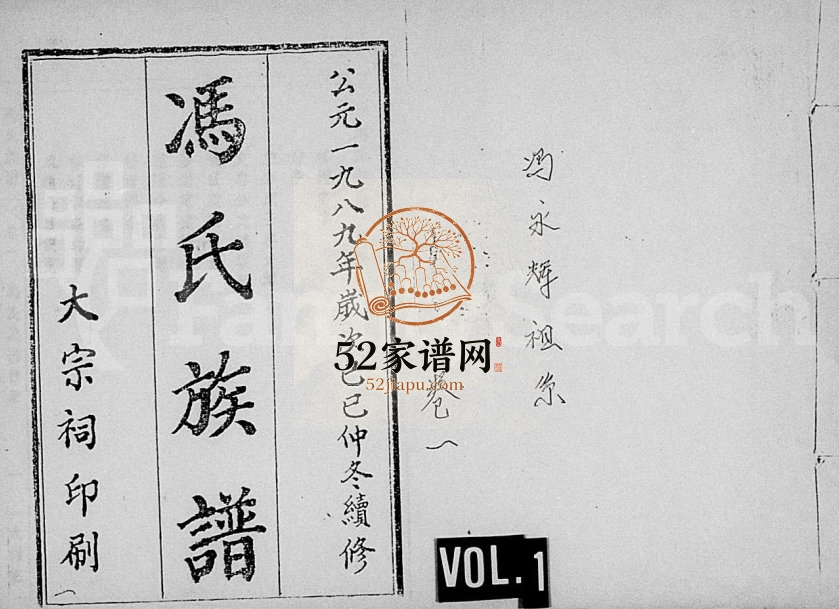 馮永輝祖系
卷一
公元一九八九年歲次己巳仲冬續修
馮氏族譜
大宗祠印刷
一
52家谱网
52jiapu.com
VOL.1
Search